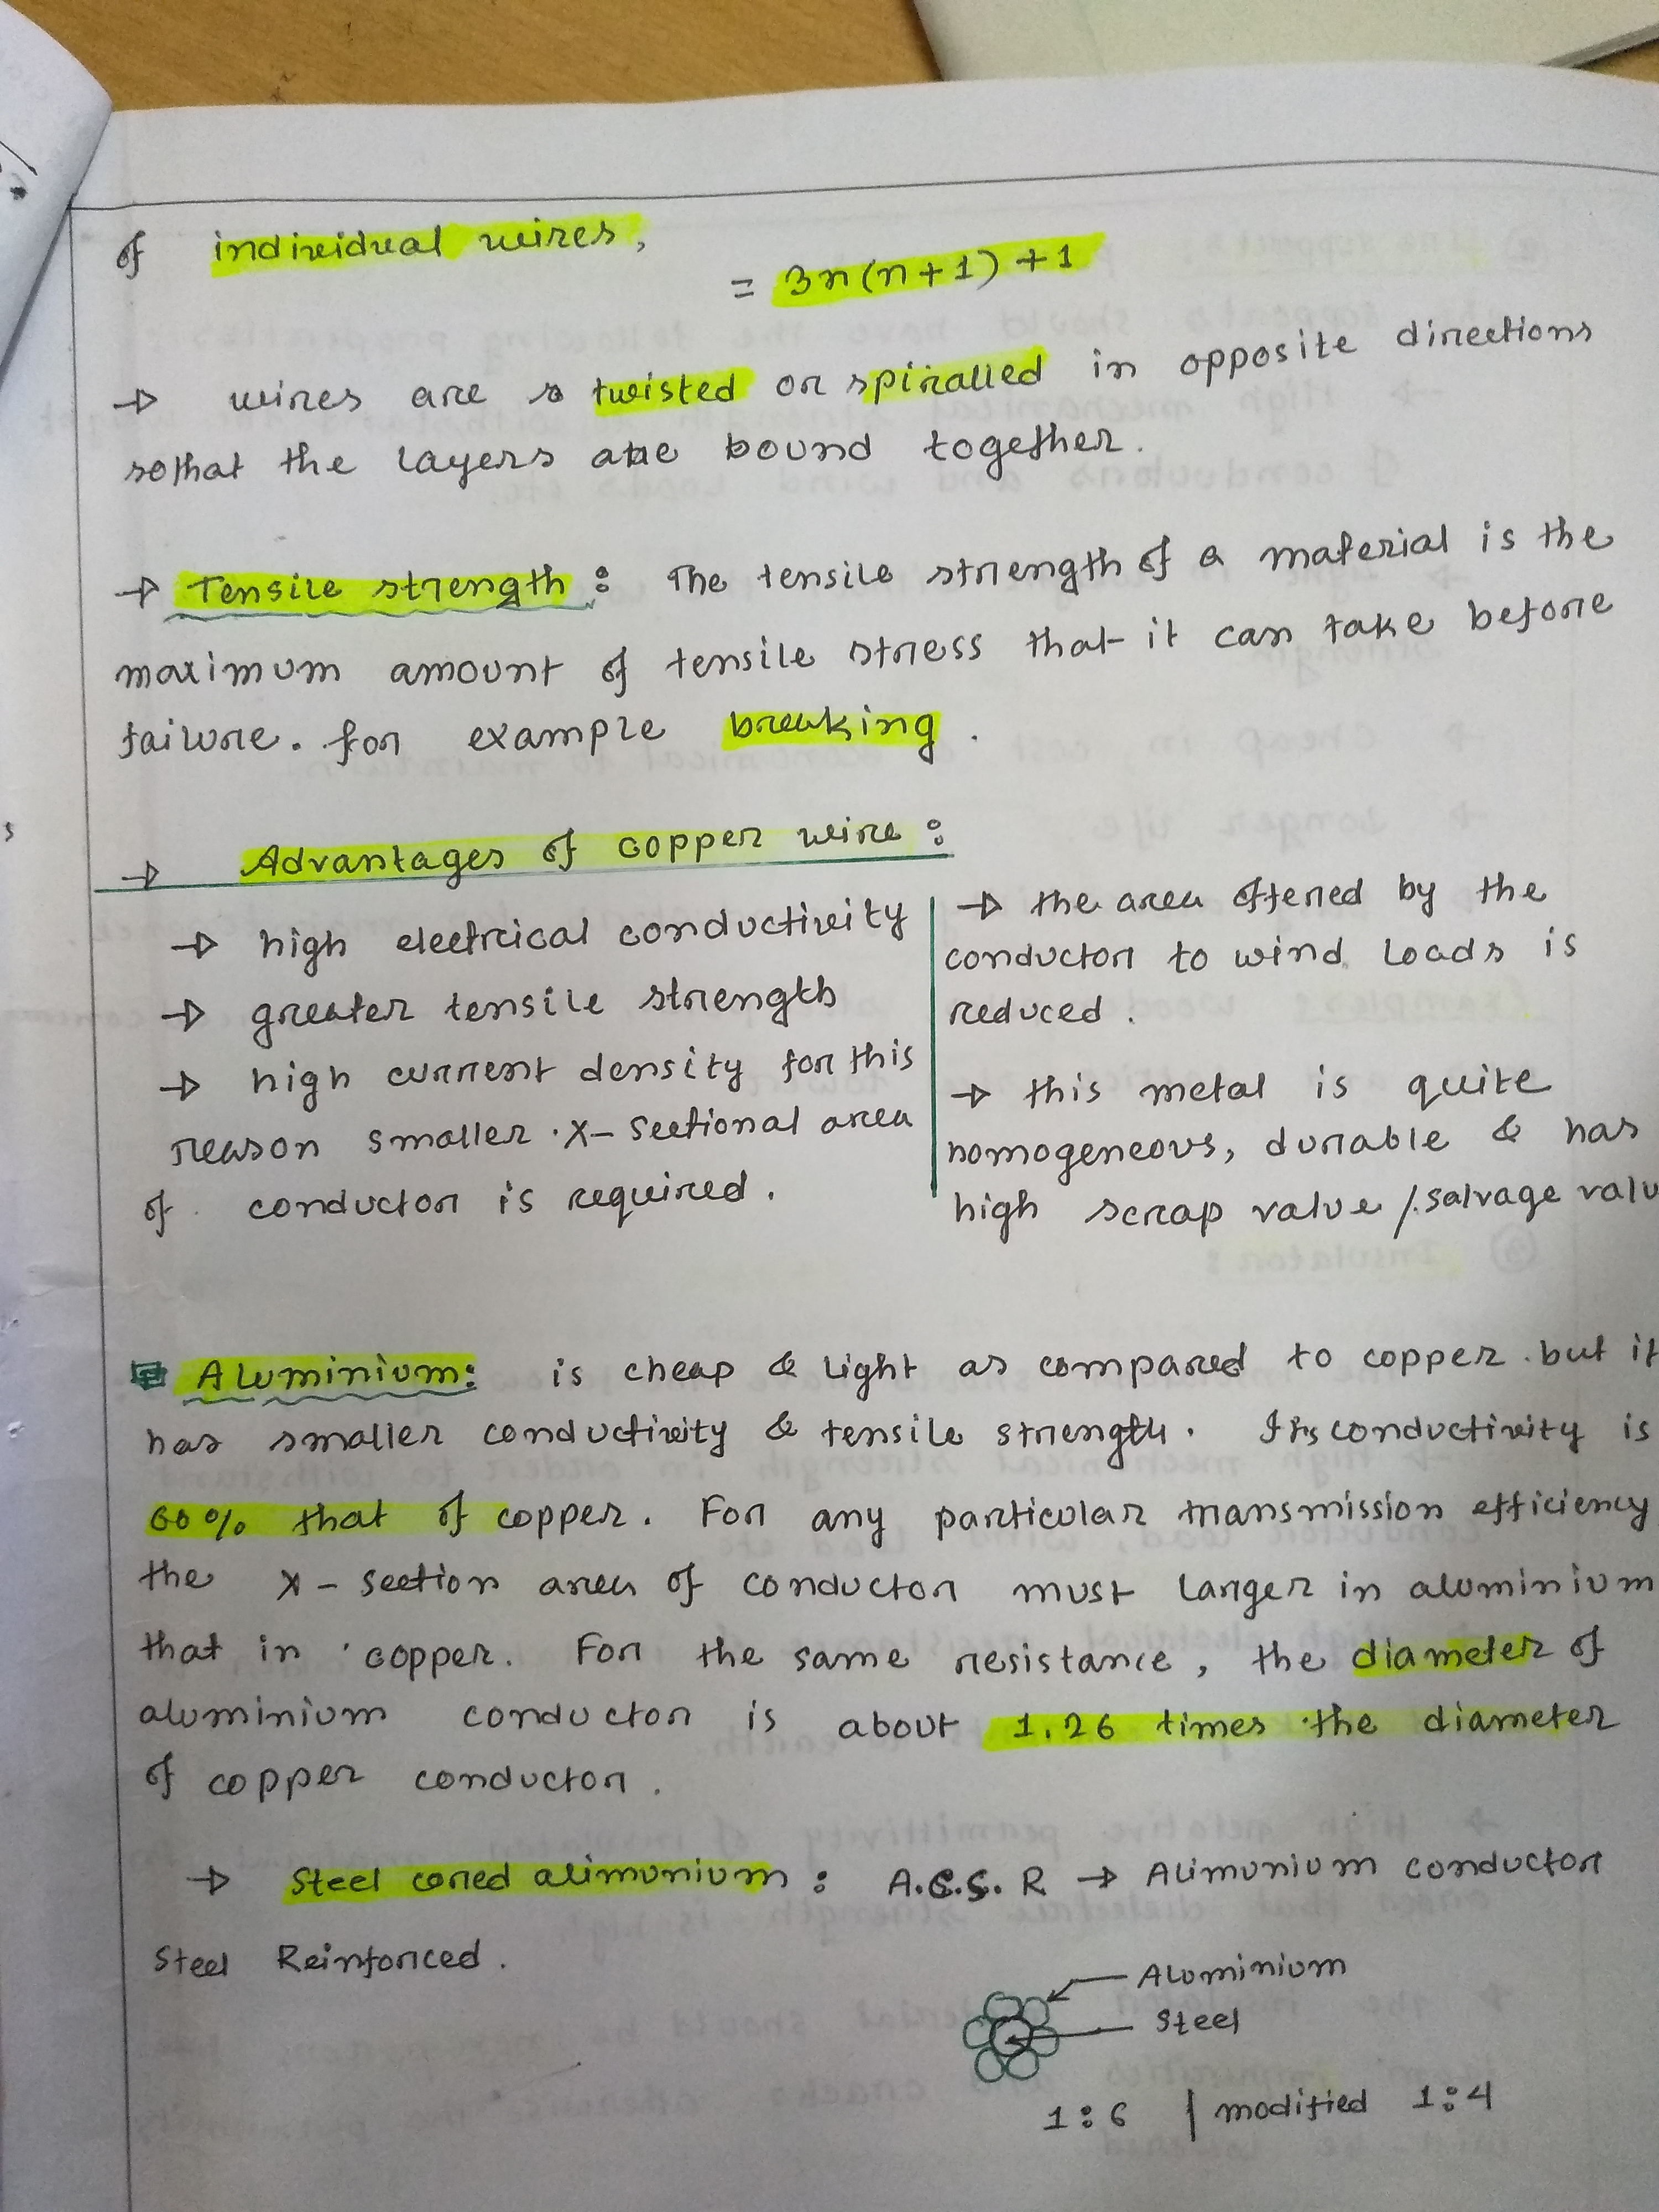 of individual wires,
= 3n(n+1)+1
→ wires are twisted or spiralled in opposite directions
sothat the layers are bound together.
→ Tensile strength: The tensile strength of a material is the
maximum amount of tensile stress that it can take before
failure. for example breaking.
→ Advantages of copper wire:
→ high electrical conductivity
→ greater tensile strength
→ high current density for this
reason smaller x-sectional area
of conductor is required.
→ the area offered by the
conductor to wind loads is
reduced.
→ this metal is quite
homogeneous, durable & has
high scrap value /salvage valu
Aluminium: is cheap & light as compared to copper. but it
has smaller conductivity & tensile strength. Its conductivity is
60% that of copper. For any particular transmission efficiency
the x-section area of conductor must larger in aluminium
that in copper. For the same resistance, the diameter of
aluminium conductor is about 1.26 times the diameter
of copper conductor.
→ Steel cored alimunium: A.C.S.R → Alimunium conductor
Steel Reinforced.
Aluminium
Steel
1:6 | modified 1:4